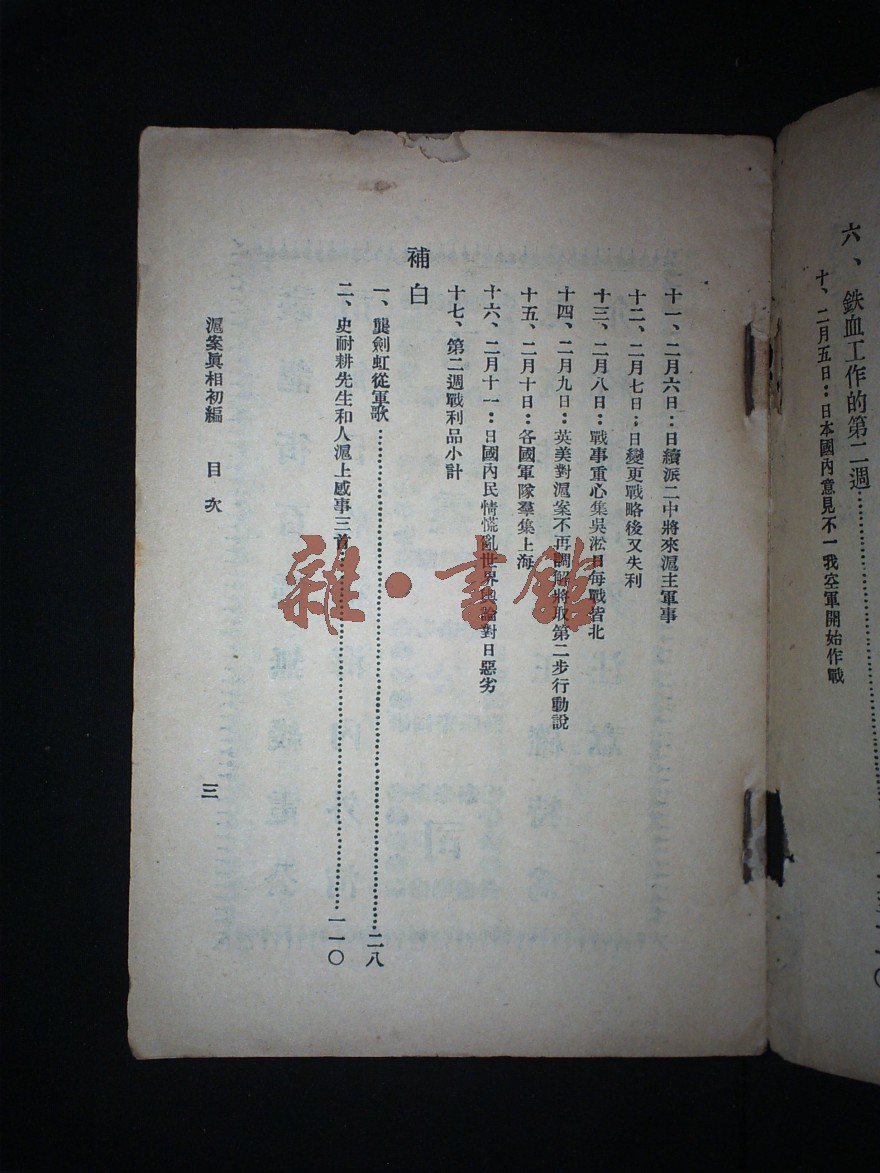 六、鉄血工作的第二週……
十、二月五日：日本國內意見不一我空軍開始作戰
十一、二月六日：日續派二中將來滬主軍事
十二、二月七日：日變更戰略後又失利
十三、二月八日：戰事重心集吳淞日每戰皆北
十四、二月九日：英美對滬案不再調解將取第二步行動說
十五、二月十日：各國軍隊羣集上海
十六、二月十一：日國內民情慌亂世界輿論對日惡劣
十七、第二週戰利品小計
補白
一、龔劍虹從軍歌……二八
二、史耐耕先生和人滬上感事三首……一一〇
滬案眞相初編 目次
三
雜·書館